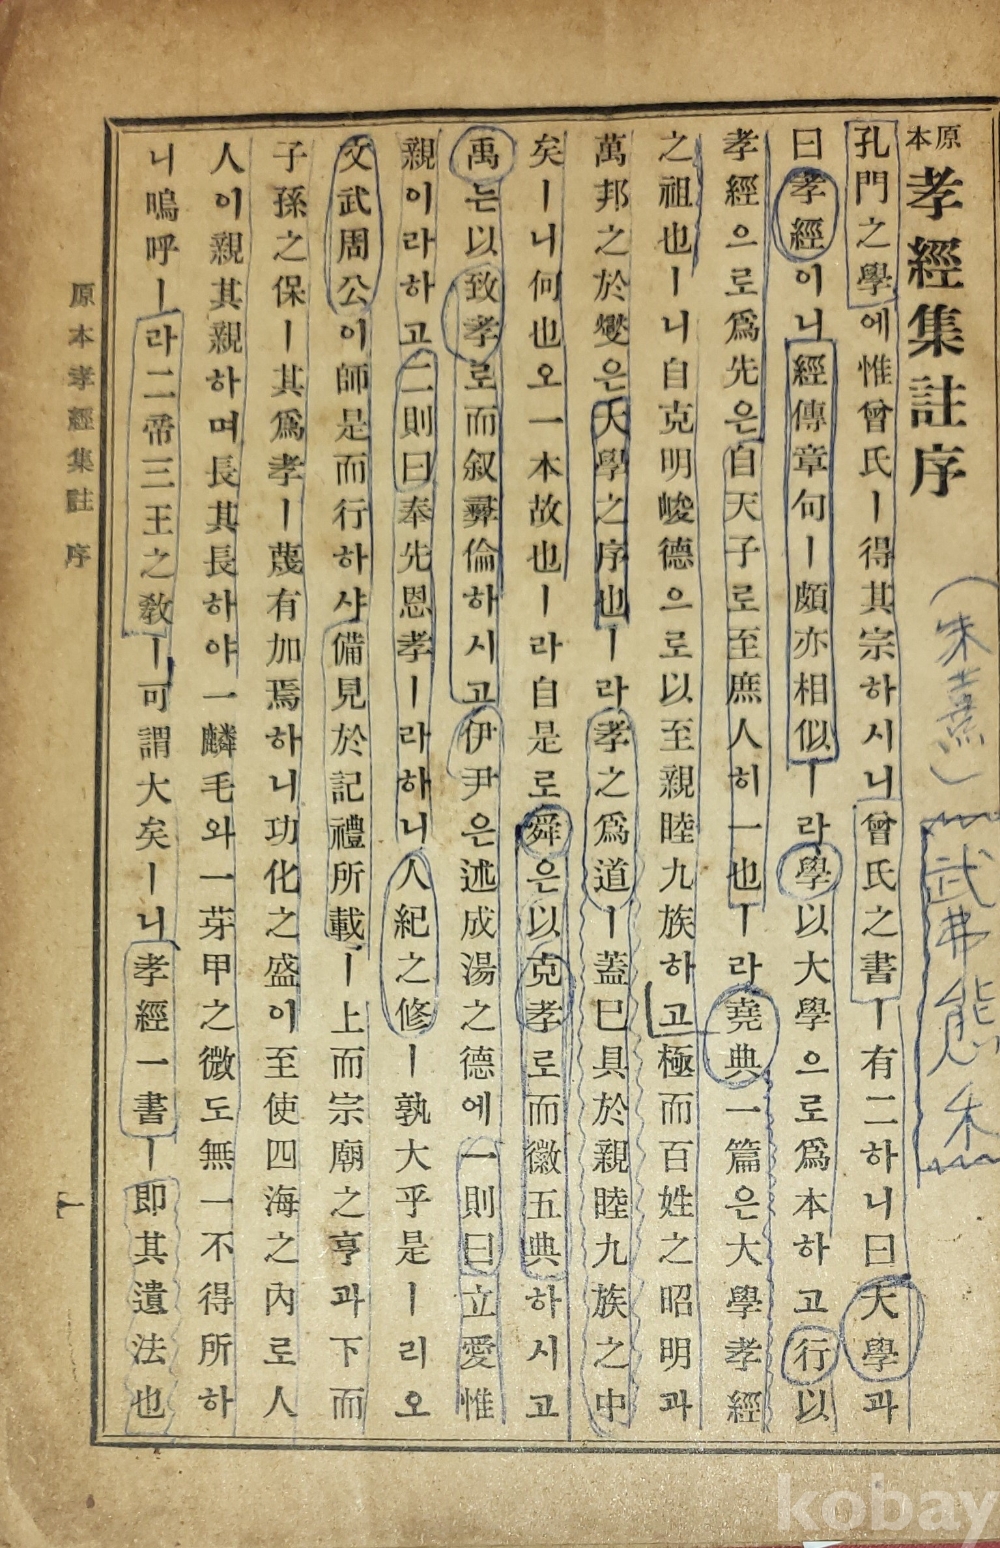 原本
孝經集註序
(朱熹)
孔門之學에惟曾氏ㅣ得其宗하시니曾氏之書ㅣ有二하니曰大學과
曰孝經이니經傳章句ㅣ頗亦相似ㅣ라學以大學으로爲本하고行以
孝經으로爲先은自天子로至庶人히一也ㅣ라堯典一篇은大學孝經
之祖也ㅣ니自克明峻德으로以至親睦九族하고極而百姓之昭明과
萬邦之於變은大學之序也ㅣ라孝之爲道ㅣ蓋已具於親睦九族之中
矣ㅣ니何也오一本故也ㅣ라自是로舜은以克孝로而徽五典하시고
禹는以致孝로而叙彛倫하시고伊尹은述成湯之德에一則曰立愛惟
親이라하고二則曰奉先恩孝ㅣ라하니人紀之修ㅣ孰大乎是ㅣ리오
文武周公이師是而行하샤備見於記禮所載ㅣ上而宗廟之亨과下而
子孫之保ㅣ其爲孝ㅣ蔑有加焉하니功化之盛이至使四海之內로人
人이親其親하며長其長하야一麟毛와一芽甲之微도無一不得所하
니嗚呼ㅣ라二帝三王之敎ㅣ可謂大矣ㅣ니孝經一書ㅣ即其遺法也
原本孝經集註 序
一
kobay